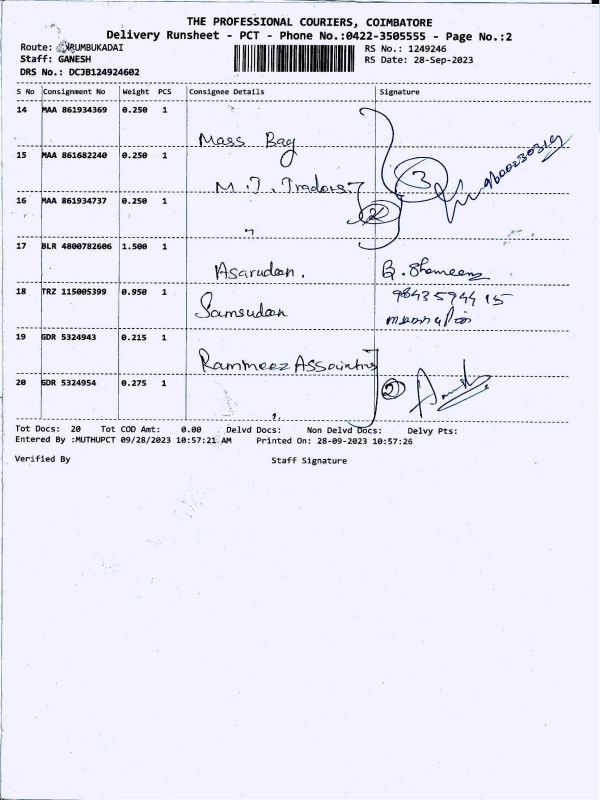 THE PROFESSIONAL COURIERS, COIMBATORE
Delivery Runsheet - PCT - Phone No.:0422-3505555 - Page No.:2
Route: RUMBUKADAI
RS No.: 1249246
Staff: GANESH
RS Date: 28-Sep-2023
DRS No.: DCJB124924602
S No Consignment No Weight PCS Consignee Details Signature
14 MAA 861934369 0.250 1
Mass Bag
15 MAA 861682240 0.250 1
M.J. Tradors
3
9600230319
16 MAA 861934737 0.250 1
2
"
17 BLR 4800782606 1.500 1
Asarudeen. B. Shameena
18 TRZ 115005399 0.950 1
9843594415
Samsudeen
19 GDR 5324943 0.215 1
Rammeez Associates
20 GDR 5324954 0.275 1
2
Tot Docs: 20 Tot COD Amt: 0.00 Delvd Docs: Non Delvd Docs: Delvy Pts:
Entered By :MUTHUPCT 09/28/2023 10:57:21 AM Printed On: 28-09-2023 10:57:26
Verified By Staff Signature